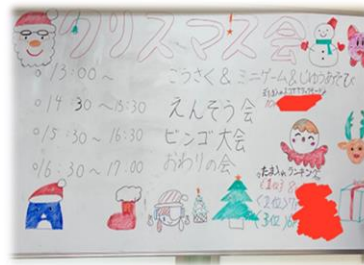 クリスマス会
○13:00～ こうさく&ミニゲーム&じゆうあそび
○14:30～15:30 えんそう会
○15:30～16:30 ビンゴ大会
○16:30～17:00 おわりの会
たまいれランキング
1位
2位
3位